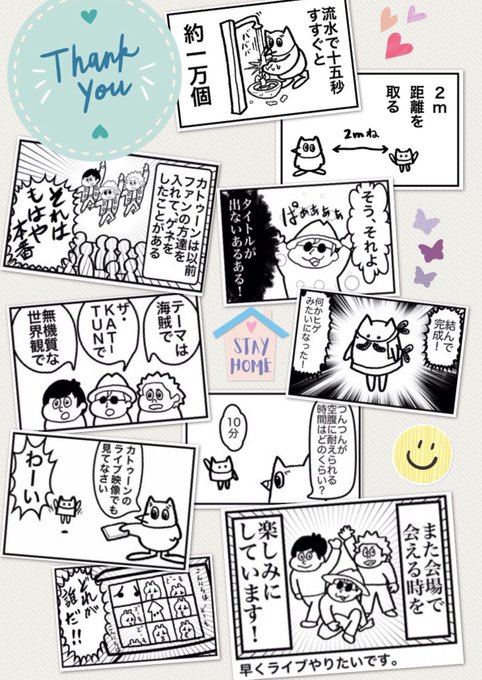 Thank
You
流水で十五秒
すすぐと
約一万個
ババババ
2m
距離を
取る
2mね
カトゥーンは以前
ファンの方達を
入れてゲネを
したことがある
それは
もはや
本番
そう、それよ
ぱぁぁぁぁ
タイトルが
出ないあるある!
テーマは
海賊で
ザ・
KAT-
TUNで
無機質な
世界観で
STAY
HOME
結んで
完成!
何かヒゲ
みたいになった!
つんつんが
空腹に耐えられる
時間はどのくらい?
10分
カトゥーンの
ライブ映像でも
見てなさい
わーい
どれが
誰だ!!
また会場で
会える時を
楽しみに
しています!
早くライブやりたいです。